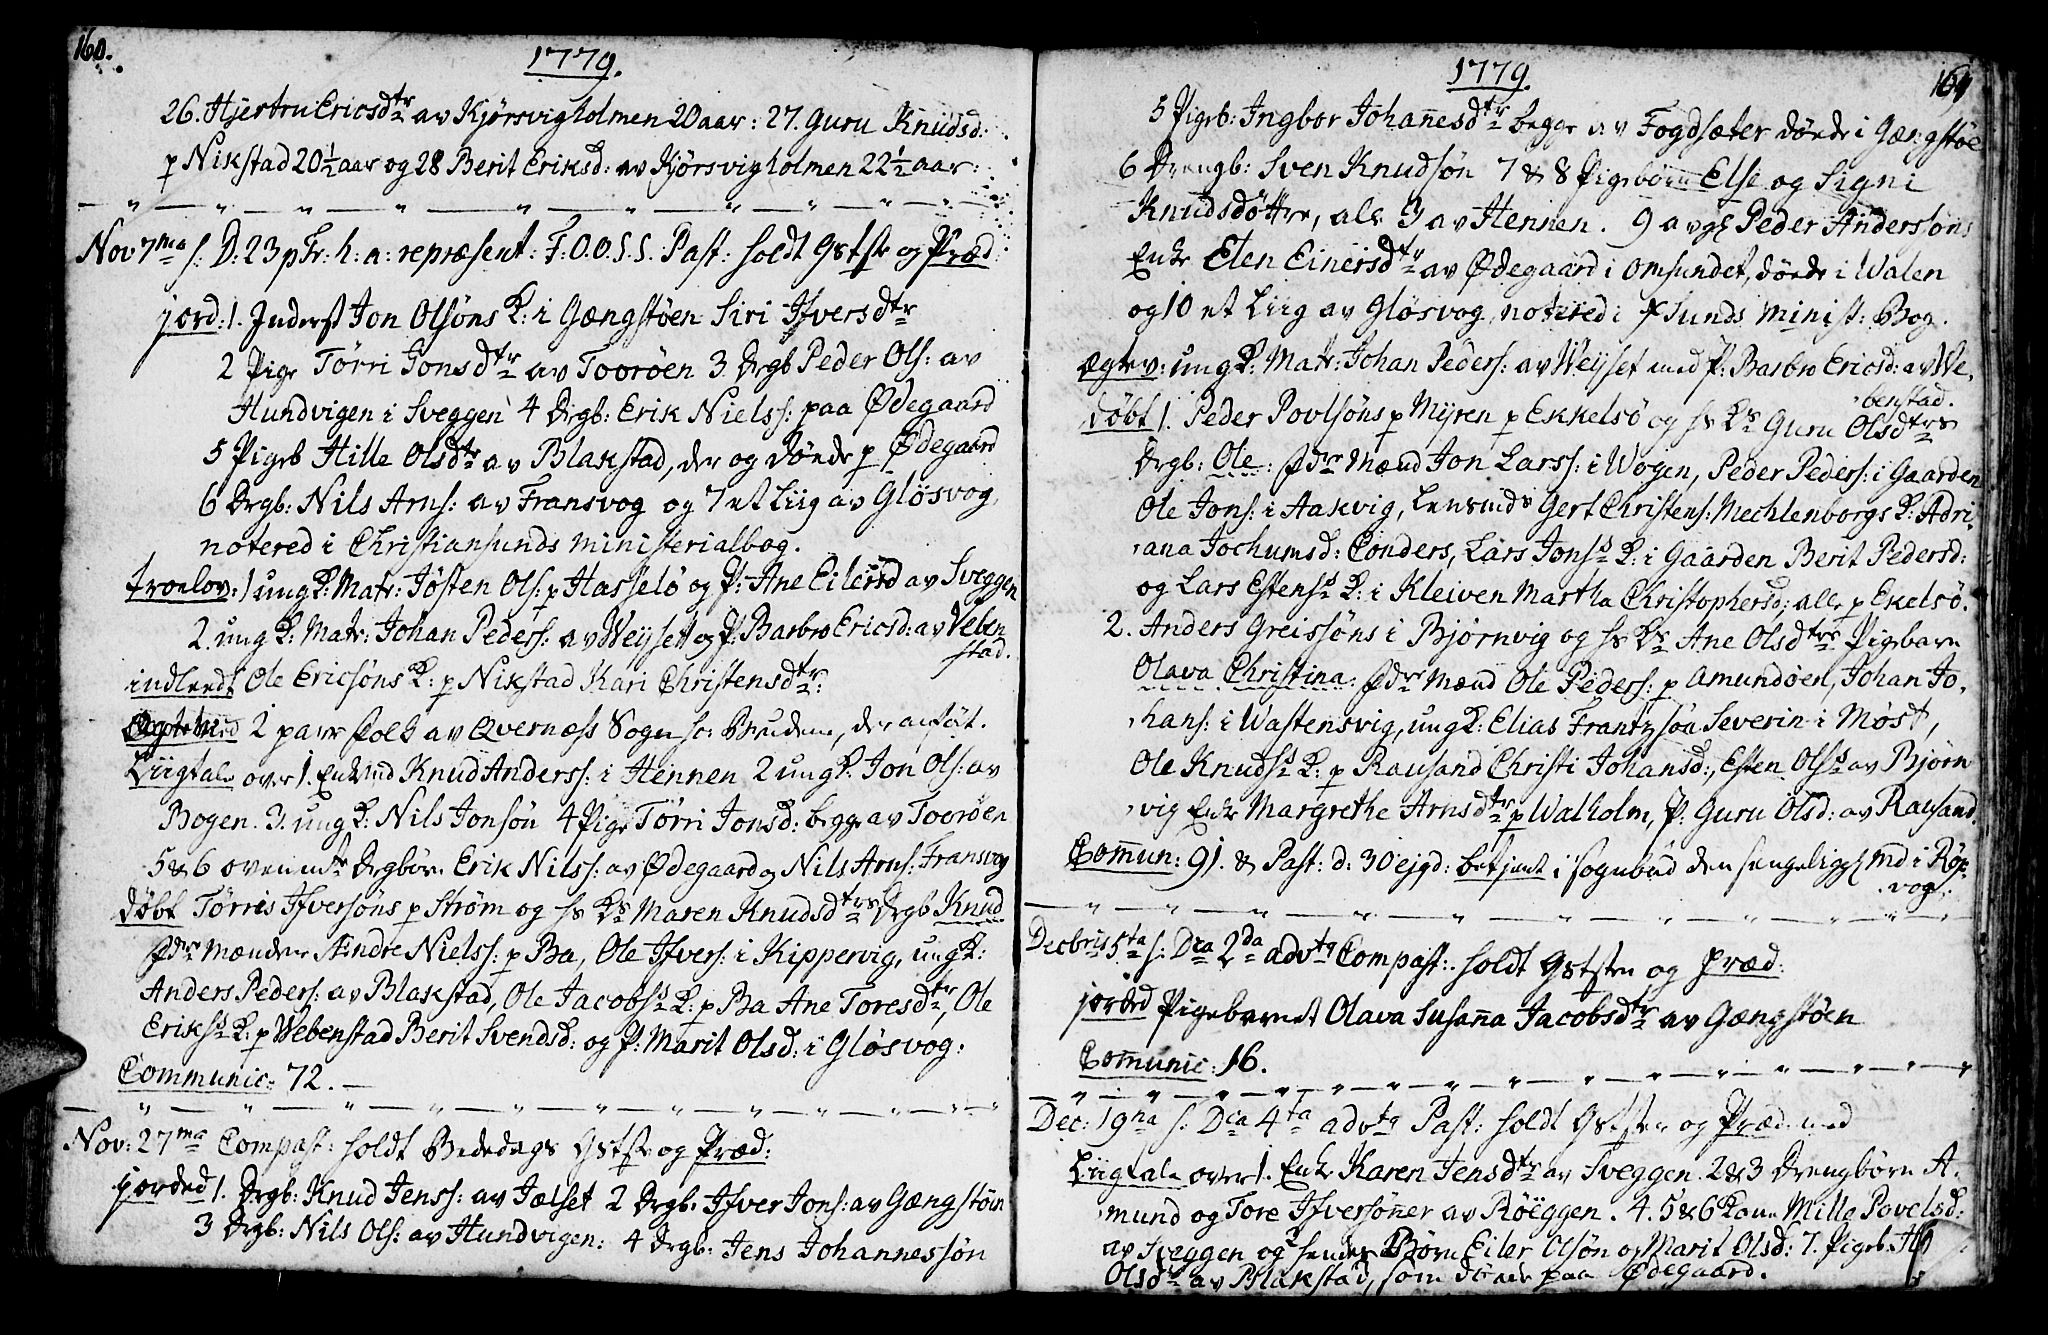 160.
1779.
26. Hjertru Ericsdtr av Kjørsvigholmen 20 aar: 27. Guru Knudsd:
p Nikstad 20½ aar og 28 Berit Eriksd: av Kjørsvigholmen 22½ aar:
Nov 7ma s: D: 23 p Tr: h: a: repræsent: F: O. O. S. S. Past: holdt Gstste og Præd:
jord: 1. Inderst Jon Olsøns K: i Gængstøen Siri Ifversdtr
2 Pige Tørri Jonsdtr av Toorøen 3 Drgb Peder Ols: av
Hundvigen i Sveggen 4 Drgb: Erik Nielss: paa Ødegaard
5 Pigeb Hille Olsdtr av Blakstad, der og døede p Ødegaard
6 Drgb: Nils Arns: av Fransvog og 7 et Liig av Gløsvog,
notered i Christiansunds ministerialbog.
troelov: 1 ungK: Matr: Jøsten Ols: p Hasselø og P: Ane Eilersd av Sveggen
2. ung K: Matr: Johan Peders: av Weyset og P: Barbro Ericsd: av Veben
stad.
indleedt Ole Ericsøns K: p Nikstad Kari Christensdtr:
Ægteviid 2 paer Folk av Qvernæss Sogn
Liigtale over 1. Enkmd Knud Anderss: i Hennen 2 ung K: Jon Ols: av
Bogen. 3. ung K: Nils Jonsøn 4 Pige Tørri Jonsd: begge av Toorøen
5 & 6 ovenmte Drgbørn Erik Nilss: av Ødegaard og Nils Arns: Fransvog
døbt Tørris Ifversøns p Strøm og hs Ks Maren Knudsdtrs Drgb Knud
fdr Mændene Ændre Nielss: p Ba, Ole Ifvers: i Kippervig, ung K:
Anders Peders: av Blakstad, Ole Jacobss K: p Ba Ane Toresdtr, Ole
Erikss K: p Webenstad Berit Svendsd: og P: Marit Olsd: i Gløsvog:
Communic: 72.
Nov: 27ma Compast: holdt Bededags Gstste og Præd:
jorded 1. Drgb: Knud Jenss: av Jælset 2 Drgb: Ifver Jons: av Gængstøen
3 Drgb: Nils Ols: av Hundvigen: 4 Drgb: Jens Johannessøn
1779.
161
5 Pigeb: Ingbor Johanesdtr begge av Fogdsæter døede i Gængstøe
6 Drengb: Sven Knudsøn 7 & 8 Pigebørn Else og Signi
Knudsdøttre, alle 3 av Hennen. 9 avgl Peder Anderssøns
Enke Elen Einersdtr av Ødegaard i Omsundet, døede i Walen
og 10 et Liig av Gløsvog notered i Xsunds minist: Bog.
ægtev: ung K: Matr: Johan Peders: av Weyset med P: Barbro Ericsd: av We-
benstad.
døbt 1. Peder Povlsøns p Myren p Ekkelsø og hs Ks Guru Olsdtrs
Drgb: Ole: fdr Mænd Jon Larss: i Wogen, Peder Peders: i Gaarden
Ole Jons: i Aakvig, Lensmds Gert Christens: Mechlenborgs K: Adri-
ana Jochumsd: Conders, Lars Jonss K: i Gaarden Berit Pedersd:
og Lars Estenss K: i Kleiven Martha Christophersd: alle p Ekelsø.
2. Anders Greissøns i Bjørnvig og hs Ks Ane Olsdtrs Pigebarn
Olava Christina: fdr Mænd Ole Peders: p Amundøen, Johan Jo-
hans: i Wastensvig, ung K: Elias Frantzsøn Severin i Møst,
Ole Knudss K: p Rausand Christi Johansd:, Esten Olss av Bjørn
vig Enke Margrethe Arnsdtr p Walholm, P: Guru Olsd: av Rausand.
Comun: 91. & Past: d: 30 ejgd: betjent i Sognebud den sengeligge Md i Røe-
vog:
Decbris 5ta s: Dca 2da advtq Compast: holdt Gststen og Præd:
jorded Pigebarnet Olava Susanna Jacobsdtr av Gængstøen
Comunic: 16.
Dec: 19na s: Dca 4ta advtq Past: holdt Gststen og Præd. med
Liigtale over 1. Enke Karen Jensdtr av Sveggen. 2 & 3 Drengbørn A-
mund og Tore Ifversønner av Røeggen. 4. 5 & 6 Kone Mille Povelsd:
av Sveggen og 2 hendes Børn Eiler Olsøn og Marit Olsd: 7. Pigeb:
Olsdtr av Blakstad, som døede paa Ødegaard.